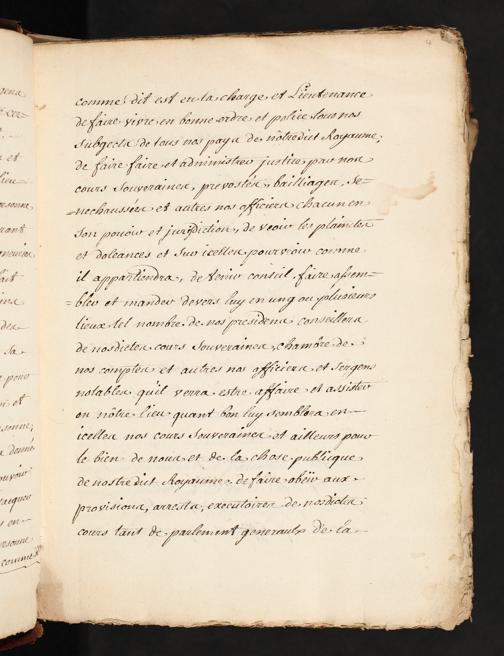 4
comme dit est en la charge et Lieutenance
de faire vivre en bonne ordre et police tous nos
subgects de tous nos pays de nôtredict Royaume,
de faire faire et administrer justice par nos
cours souveraines, prevostés, bailliages, Se-
=nechaussées et autres nos officiers chacun en
son pouvoir et jurisdiction, de veoir les plaintes
et doleances et sur icelles pourvoir comme
il appartiendra, de tenir conseil faire assem-
=bler et mander devers luy en ung ou plusieurs
lieux tel nombre de nos presidens conseillers
de nosdictes cours souveraines, chambre de
nos comptes et autres nos officiers et sergens
notables qu'il verra estre affaire et assister
en nôtre lieu quant bon luy semblera en
icelles nos cours souveraines et ailleurs pour
le bien de nous et de la chose publique
de nostredict Royaume, de faire obéir aux
provisions, arrests, executoires de nosdictes
cours tant de parlement generaulx de la